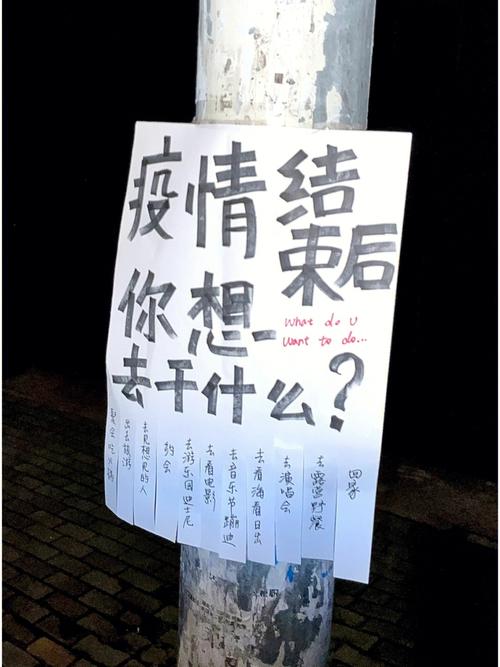 疫情结
束后
你想
What do u
want to do...
去干什么?
聚会吃火锅
出去旅游
去见想见的人
约会
去游乐园迪士尼
去看电影
去音乐节蹦迪
去看海看日出
去演唱会
去露营野餐
回家